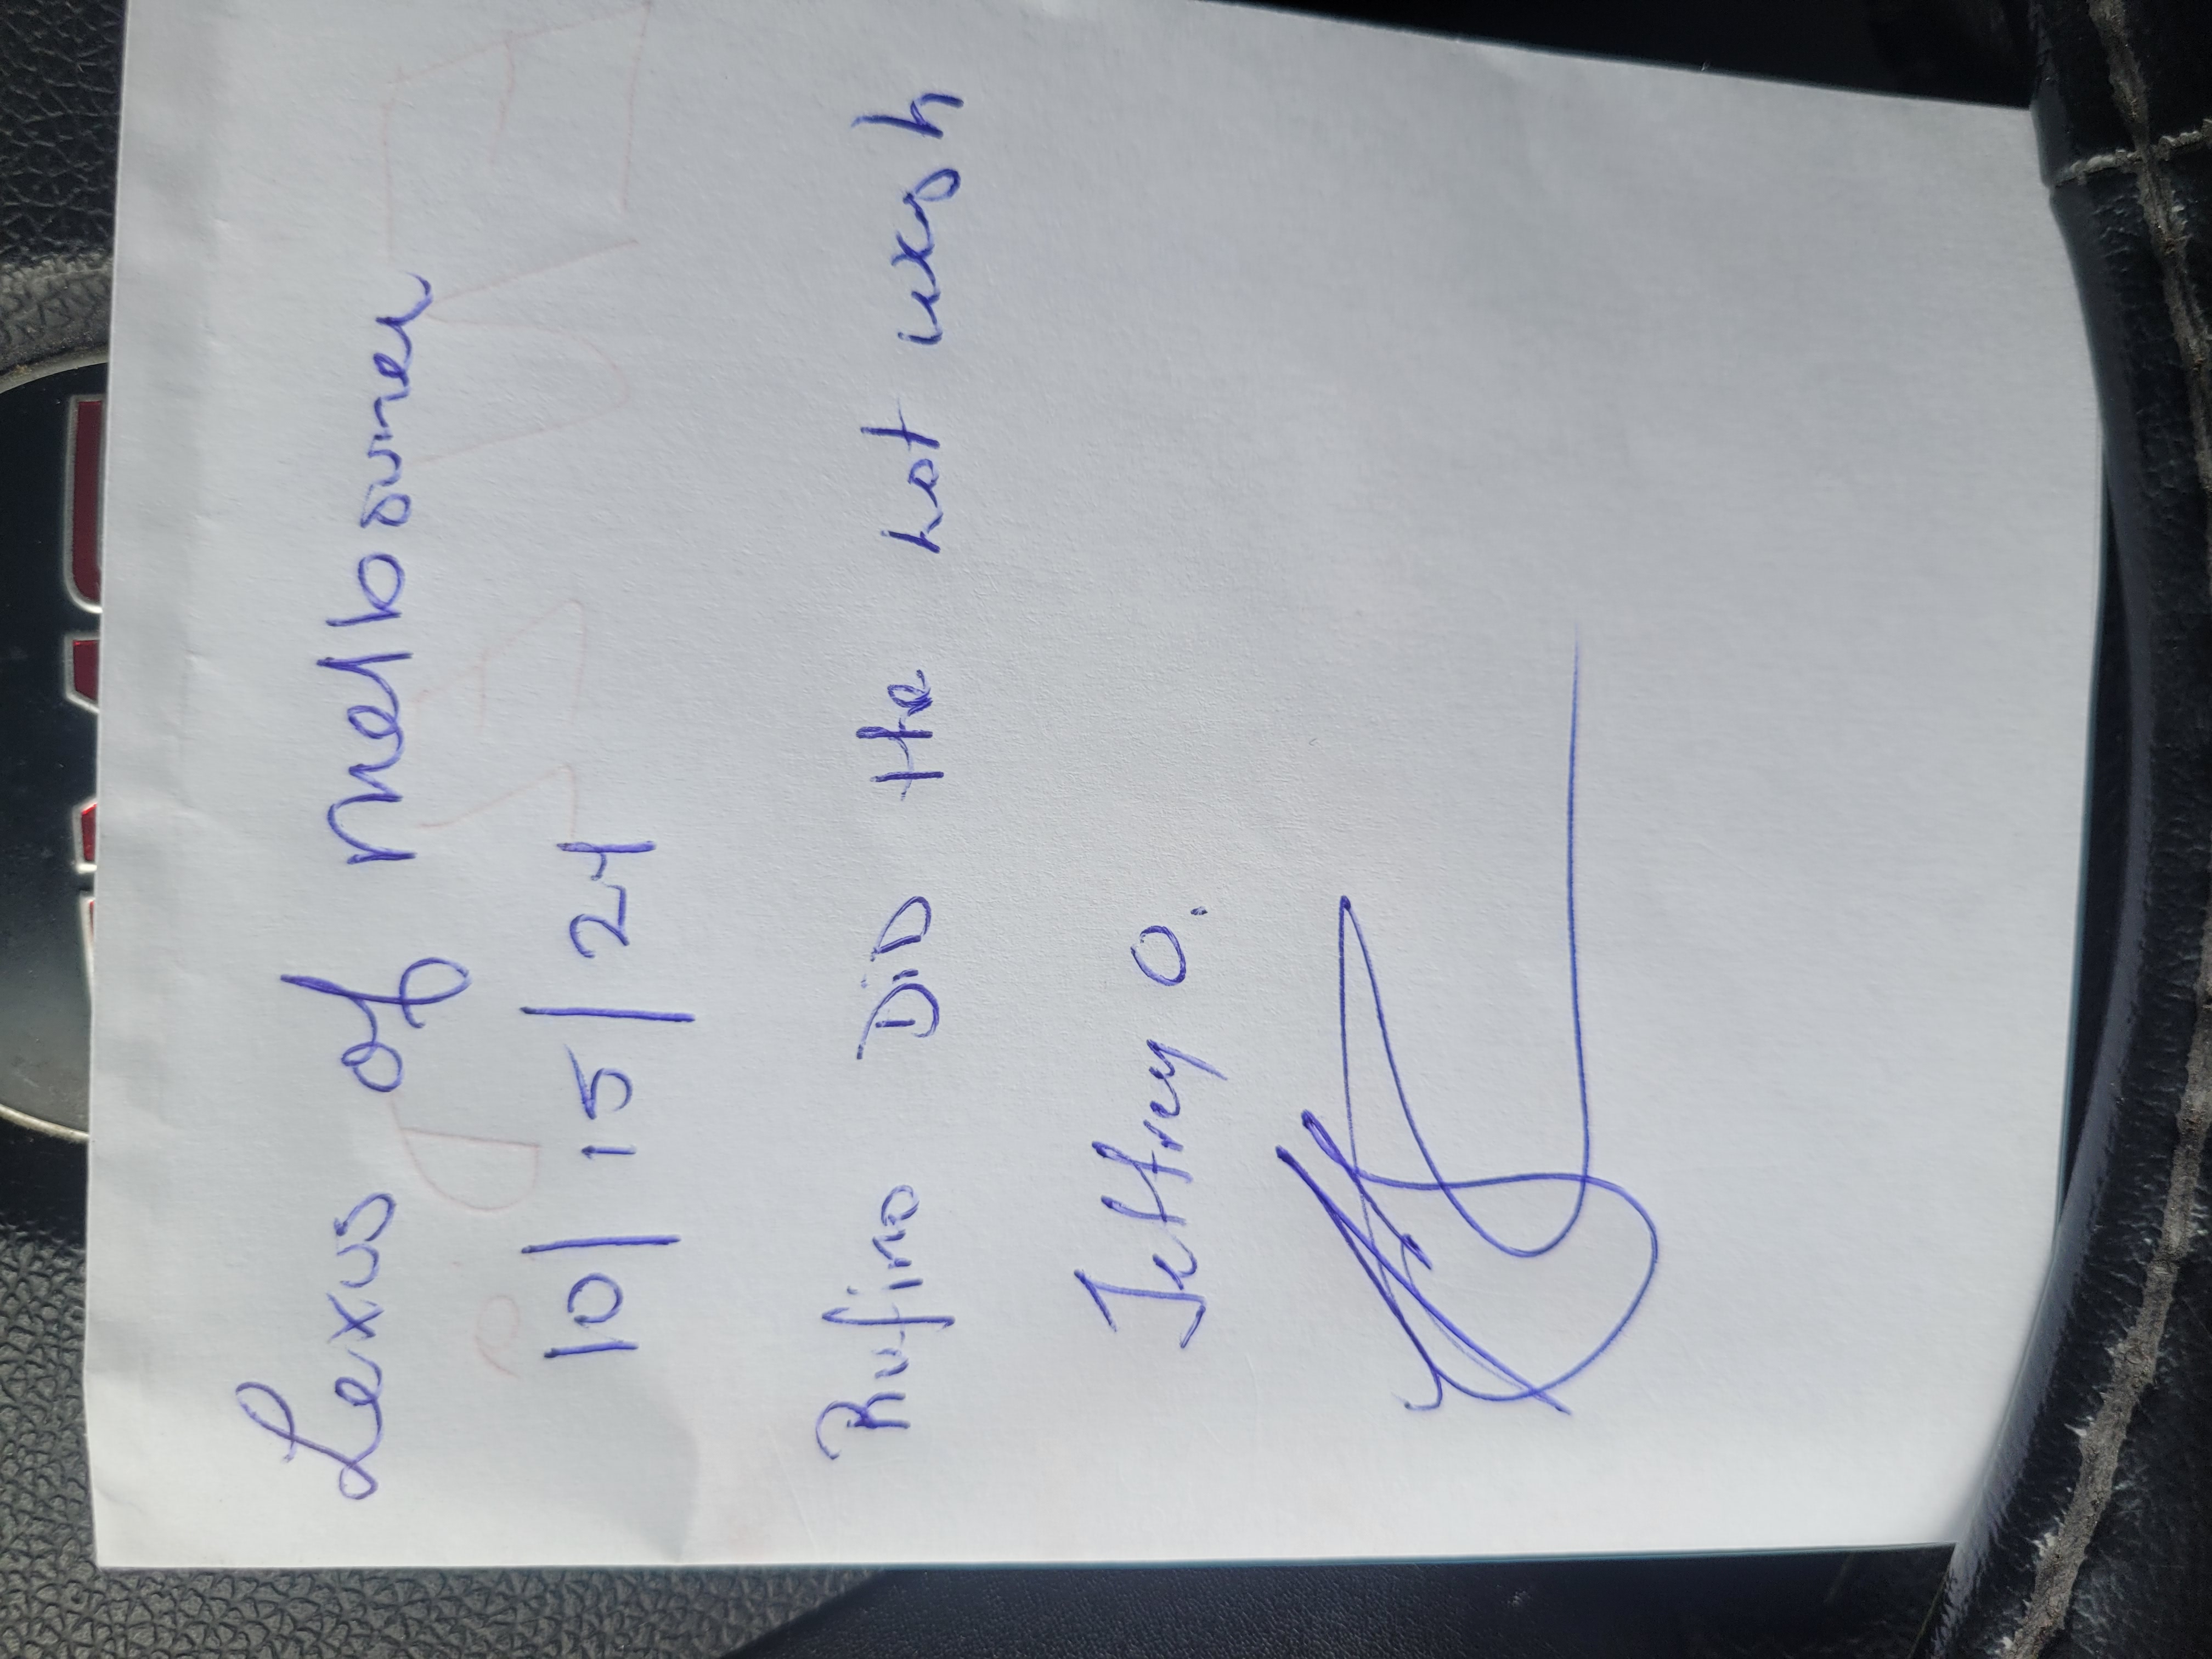 Lexus of Melbourner
10/15/24
Rufino DiD the Lot wash
Jeffrey O.